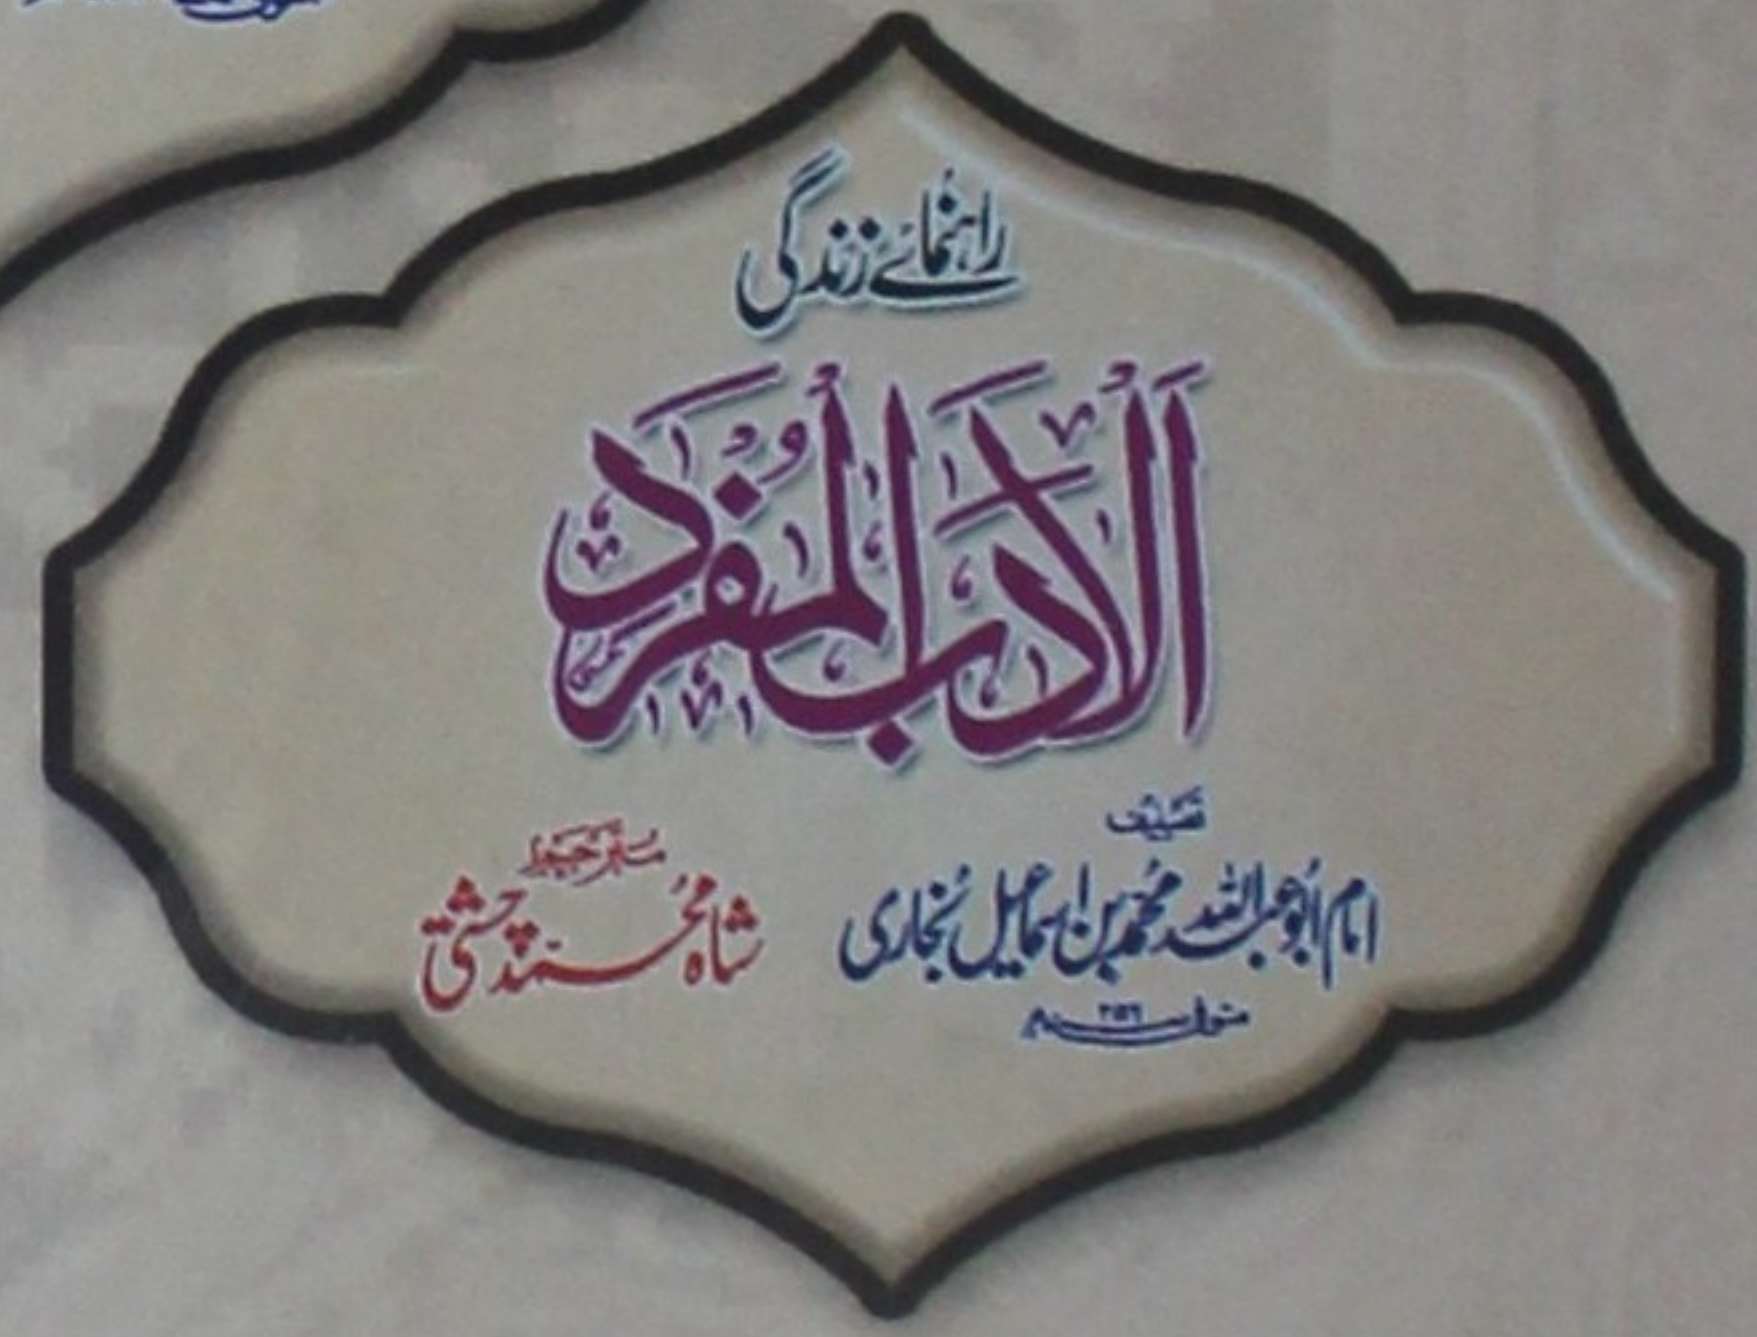 راہنمائے زندگی
الَْاَدَبُ الْمُفْرَد
تصنیف
امام ابو عبداللہ محمد بن اسماعیل بخاری
متوفی سنہ ۲۵۶
مترجم
شاہ محمد چشتی